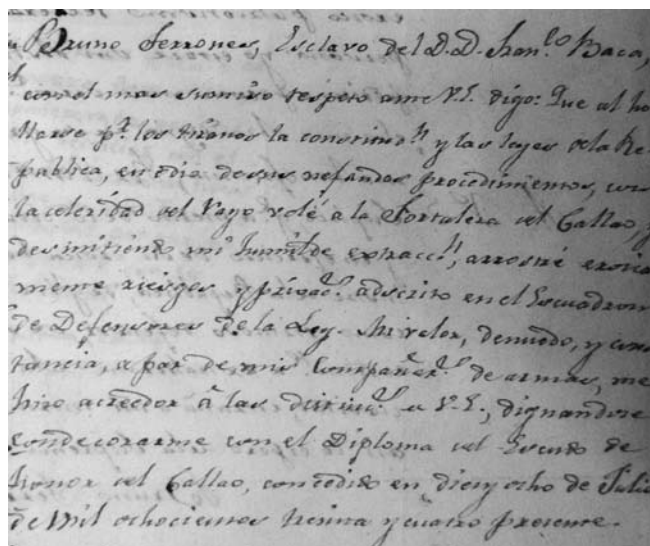 Bruno Terrones, Esclavo del D.D. Fran.co Baca,
con el mas sumiso respeto ante V.E. digo: Que al ho
llarse p.r los tiranos la constituc.n y las leyes de la Re
publica, en odio de sus nefandos procedimientos, con
la celeridad del Rayo volé a la Fortaleza del Callao, y
desmitiendo mi humilde extracc.n, arrostré eroica
mente riesgos y privac.s adscrito en el Escuadron
de Defensores de la Ley. Mi valor, denuedo, y cons
tancia, a par de mis Compañer.s de armas, me
hizo acreedor â las distinc.s de V.E., dignandose
condecorarme con el Diploma del Escudo de
honor del Callao, concedido en diez y ocho de Julio
de Mil ochocientos treinta y cuatro presente.